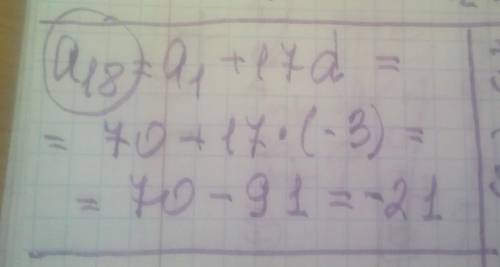 a₁₈ = a₁ + 17d =
= 70 + 17 · (-3) =
= 70 - 91 = -21